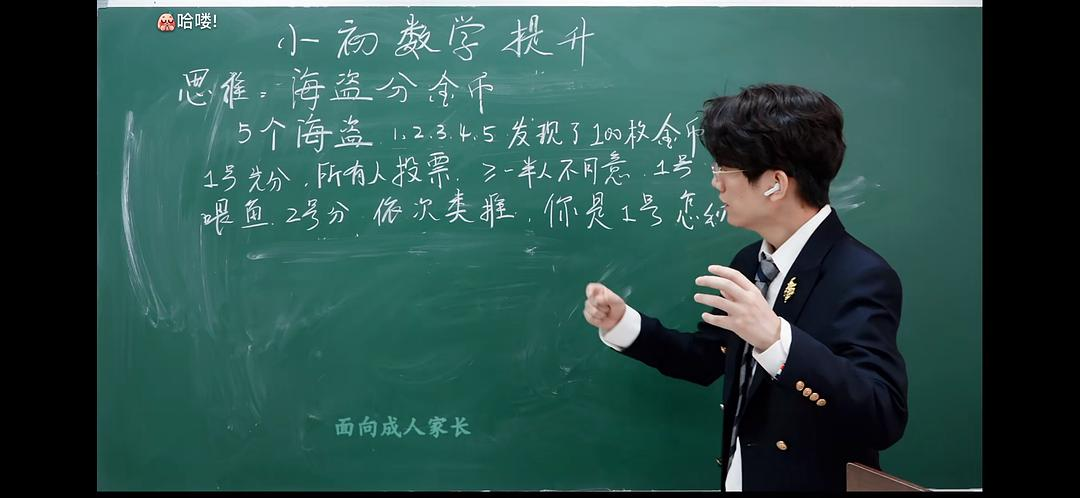 哈喽!
小初数学提升
思维:海盗分金币
5个海盗.1.2.3.4.5发现了100枚金币
1号先分.所有人投票.≥一半人不同意.1号
喂鱼.2号分.依次类推.你是1号怎
面向成人家长